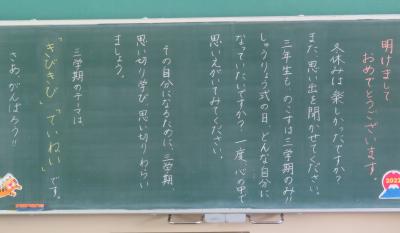 明けまして
おめでとうございます。
冬休みは楽しかったですか?
また、思い出を聞かせてください。
三年生も、のこすは三学期のみ!!
しゅうりょう式の日、どんな自分に
なっていたいですか?一度、心の中で
思いえがいてみてください。
その自分になるために、三学期、
思い切り学び、思い切りわらい
ましょう。
三学期のテーマは
「きびきび」「ていねい」です。
さあ、がんばろう!!
2022